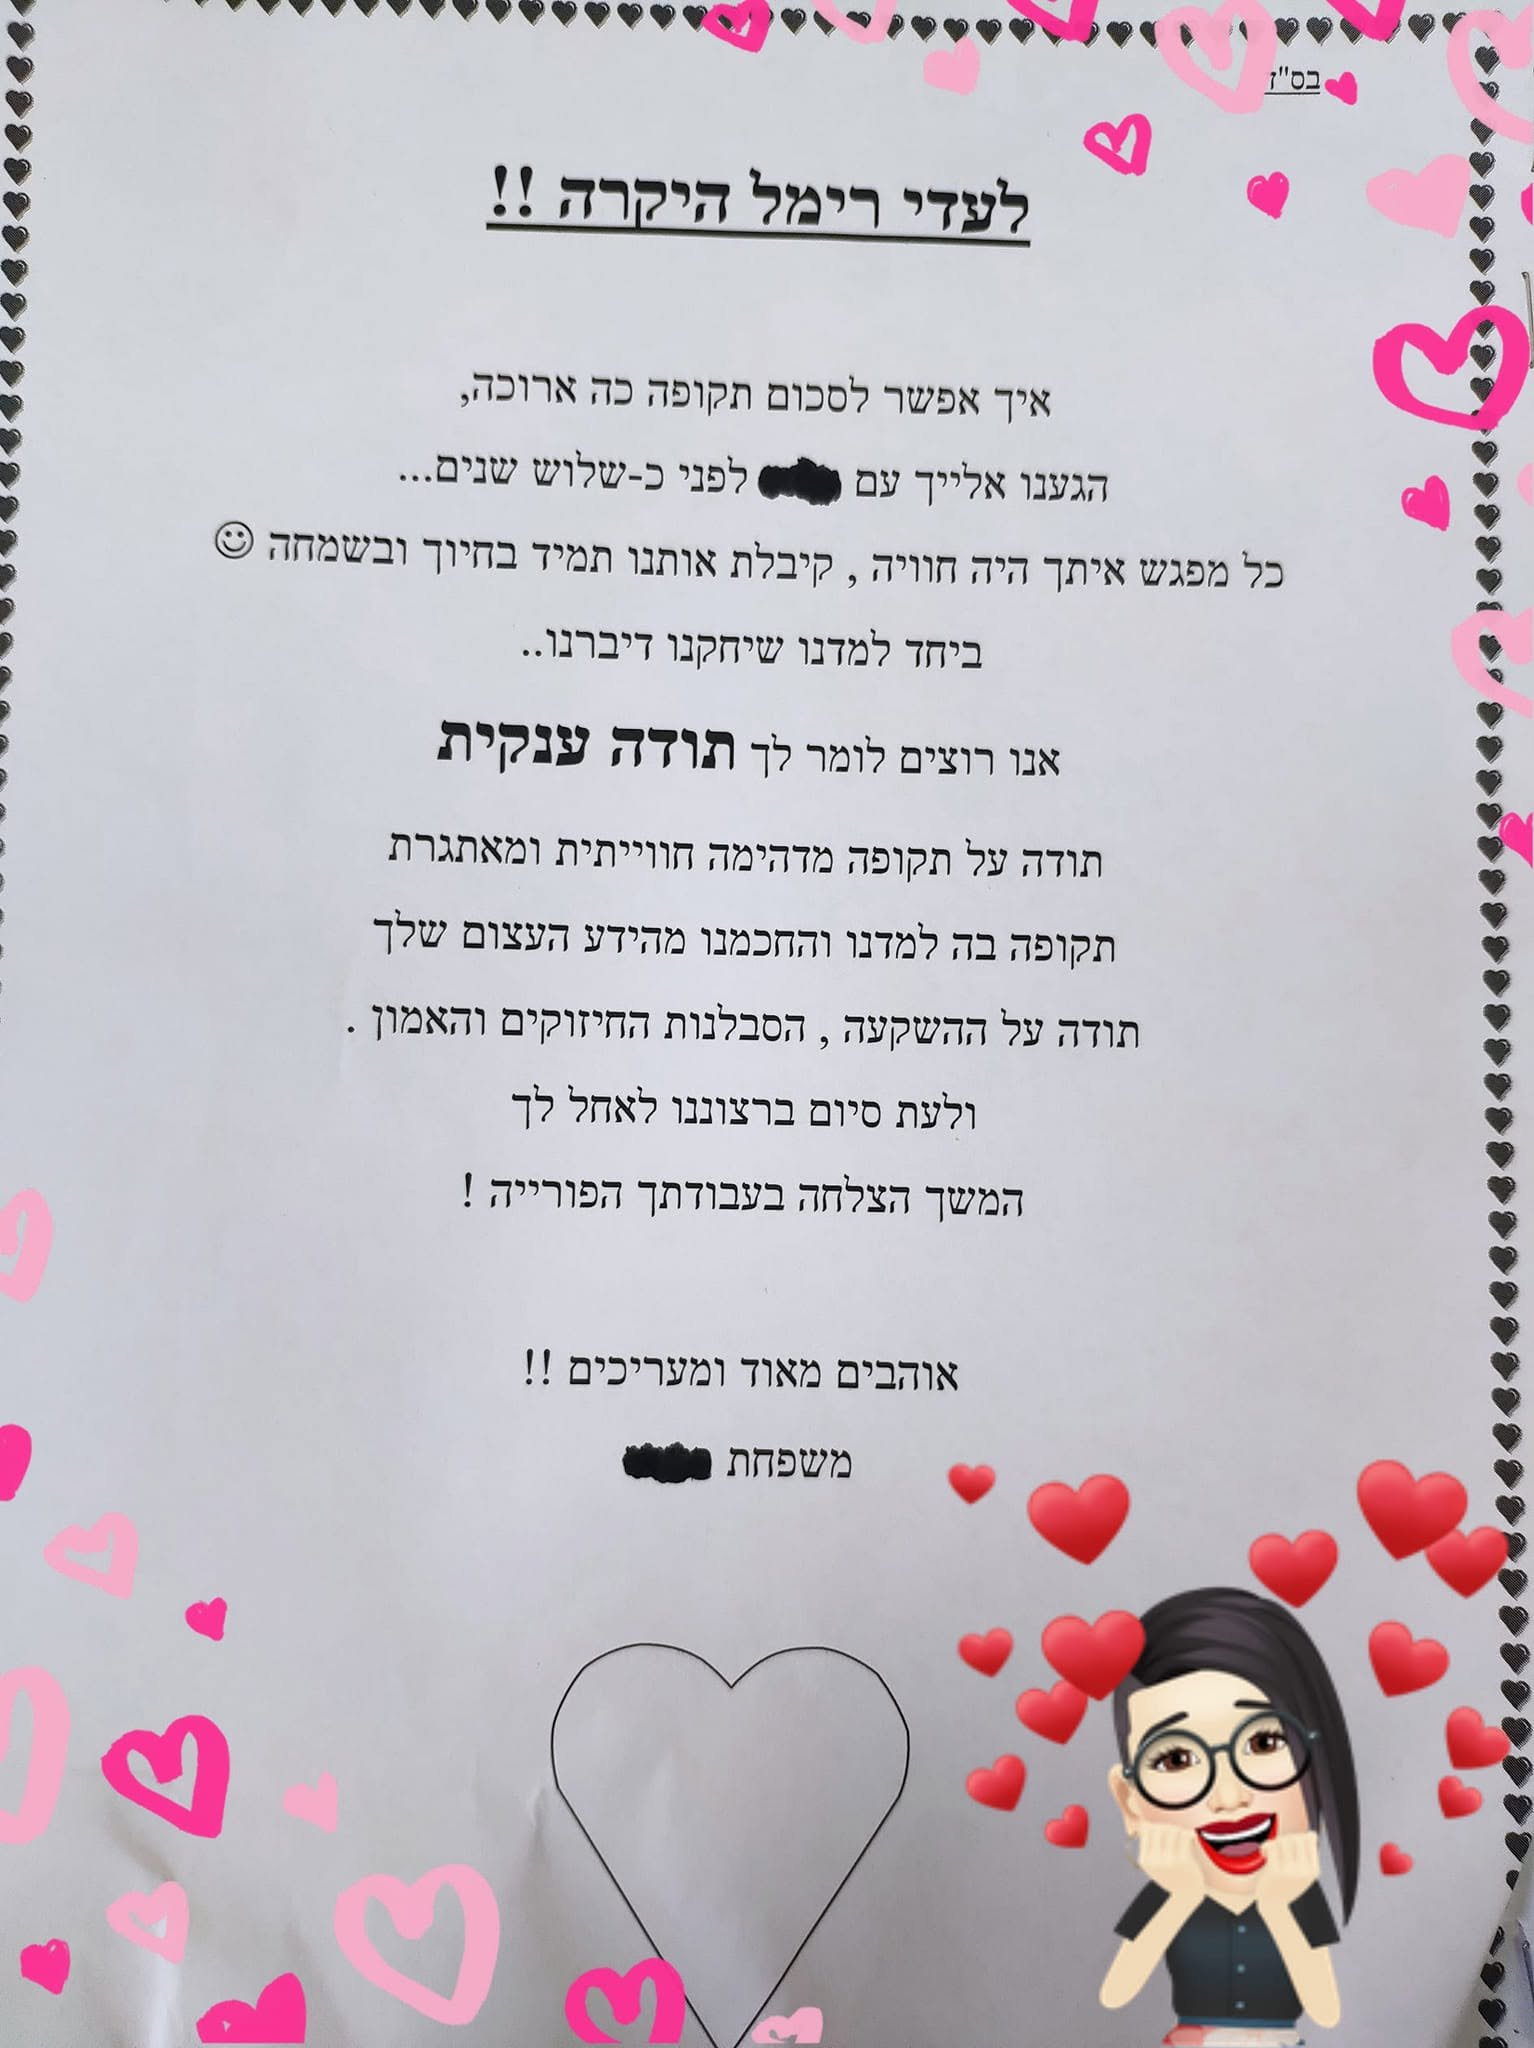 בס"ד
לעדי רימל היקרה !!
איך אפשר לסכום תקופה כה ארוכה,
הגענו אלייך עם לפני כ-שלוש שנים...
כל מפגש איתך היה חוויה , קיבלת אותנו תמיד בחיוך ובשמחה ☺
ביחד למדנו שיחקנו דיברנו..
אנו רוצים לומר לך תודה ענקית
תודה על תקופה מדהימה חווייתית ומאתגרת
תקופה בה למדנו והחכמנו מהידע העצום שלך
תודה על ההשקעה , הסבלנות החיזוקים והאמון .
ולעת סיום ברצוננו לאחל לך
המשך הצלחה בעבודתך הפורייה !
אוהבים מאוד ומעריכים !!
משפחת